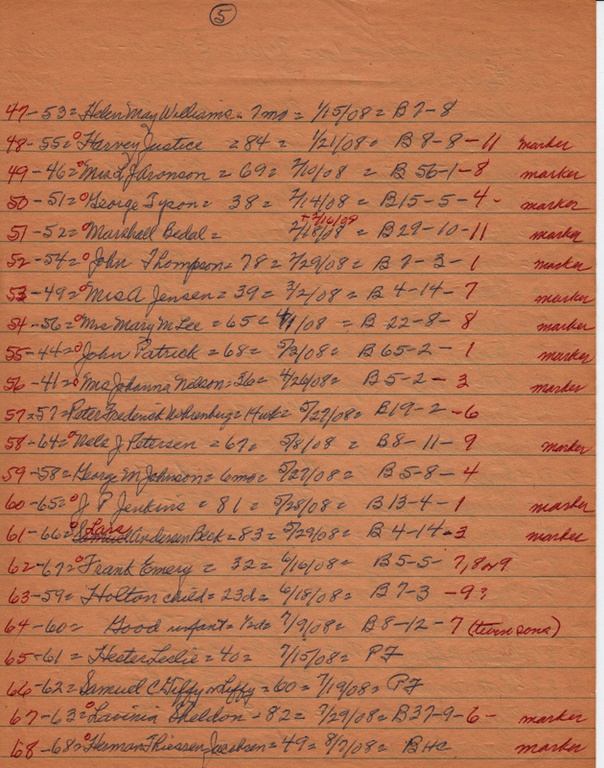 5
47-53=Helen May Williams=7mo=1/15/08=B7-8
48-55=°Harvey Justice =84= 1/21/08= B 8-8-11 marker
49-46=°Mrs L J Aronson = 69= 2/10/08 = B 56-1-8 marker
50-51=°George Tyson= 38= 2/14/08 =B15-5-4- marker
2/16/08
51-52=°Marshall Bedal= 2/18/08 = B29-10-11 marker
52-54=°John Thompson=78=2/29/08= B 7-3-1 marker
53-49=°Mrs A Jensen=39=3/2/08= B 4-14-7 marker
54-56=°Mrs Mary M Lee =65= 4/1/08 = B 22-8-8 marker
55-44=°John Patrick =68= 5/2/08= B 65-2-1 marker
56-41=°Mrs Johanna Nelson=56= 4/26/08= B5-2-3 marker
57-57=Peter Frederick =14wk= 5/27/08= B19-2-6
58-64=°Nels J Petersen =67= 5/8/08 = B8-11-9 marker
59-58=George M Johnson=6mo= 5/27/08= B5-8-4
60-65=°J P Jenkins =81= 5/28/08= B13-4-1 marker
Lars
61-66=°Samuel Andersen Beck=83=5/29/08= B 4-14-3 marker
62-67=°Frank Emery = 32=6/16/08= B5-5-7,8 or 9
63-59= Holton child=23d=6/18/08= B7-3 -9?
64-60= Good infant=1/2d= 7/19/08= B8-12-7 (twin sons)
65-61= Hester Leslie=40= 7/15/08= PF
66-62=Samuel C Giffy or Liffy=60=7/19/08= PF
67-63=°Lavinia Sheldon=82=7/29/08=B37-9-6- marker
68-68=°Herman Thiessen Jacobsen=49=8/7/08= BHC marker